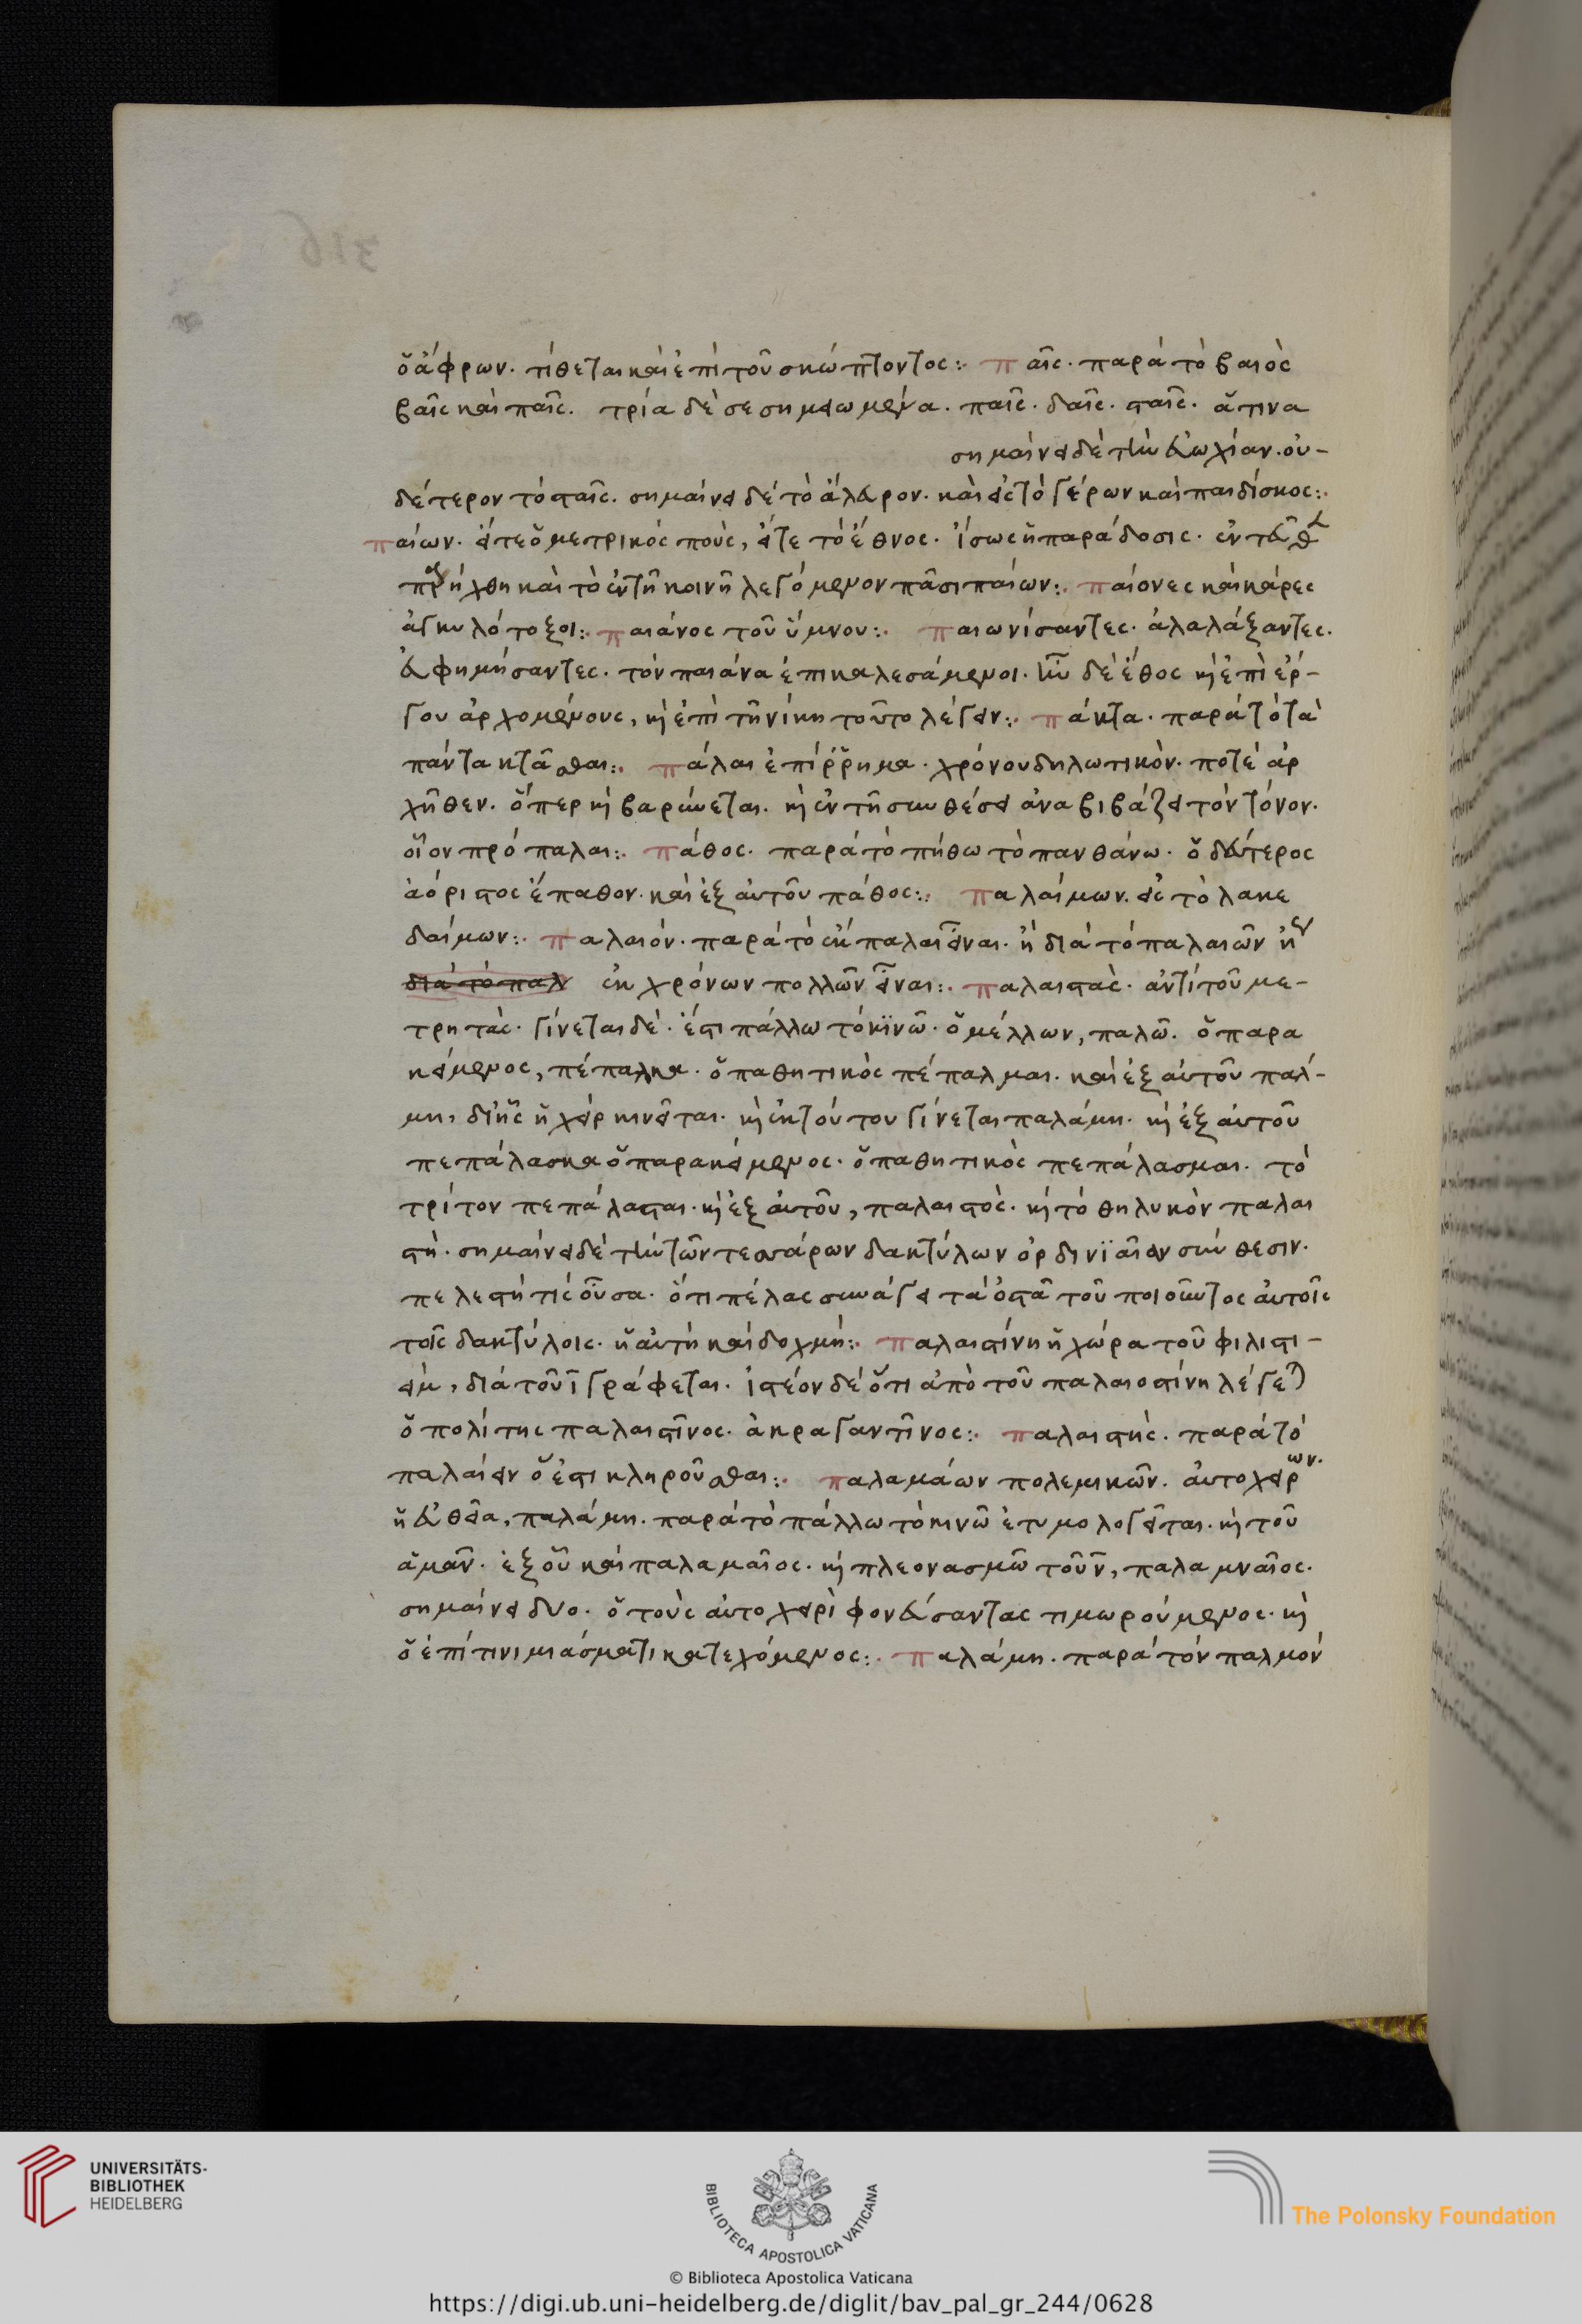 ὁ ἄφρων. τίθεται καὶ ἐπὶ τοῦ σκώπτοντος:. παῖς. παρὰ τὸ βαιὸς
βαῖς καὶ παῖς. τρία δὲ σεσημειωμένα. παῖς. δαῖς. σταῖς. ἅτινα
σημαίνει δὲ τὴν εὐωχίαν. οὐ-
δέτερον τὸ σταῖς. σημαίνει δὲ τὸ ἄλευρον. καὶ εἰς τὸ γέρων καὶ παιδίσκος:.
παίων. εἴτε ὁ μετρικὸς ποὺς, εἴτε τὸ ἔθνος. ἴσως ἡ παράδοσις.
καὶ τὸ ἐν τῇ κοινῇ λεγόμενον πᾶσι παίων:. παίονες καὶ κάρες
ἀγκυλότοξοι:. παιάνος τοῦ ὕμνου:. παιωνίσαντες. ἀλαλάξαντες.
εὐφημήσαντες. τὸν παιάνα ἐπικαλεσάμενοι. ἦν δὲ ἔθος κὴ ἐπὶ ἔρ-
γου ἀρχομένους, κὴ ἐπὶ τῇ νίκη τοῦτο λέγειν:. πάντα. παρὰ τὸ τὰ
πάντα κτᾶσθαι:. πάλαι ἐπίρρημα. χρόνου δηλωτικὸν. ποτὲ ἀρ
χῆθεν. ὅπερ κὴ βαρύνεται. κὴ ἐν τῇ συνθέσει ἀναβιβάζει τὸν τόνον.
οἷον πρόπαλαι:. πάθος. παρὰ τὸ πήθω τὸ πανθάνω. ὁ δεύτερος
ἀόριστος ἔπαθον. καὶ ἐξ αὐτοῦ πάθος:. παλαίμων. εἰς τὸ λακε
δαίμων:. παλαιόν. παρὰ τὸ ἐκ παλαι εἶναι. ἢ διὰ τὸ παλαιῶν
διὰ τὸ παλ ἐκ χρόνων πολλῶν εἶναι:. παλαιστάς. ἀντὶ τοῦ με-
τρητάς. γίνεται δὲ. ἔστι πάλλω τὸ κϊνῶ. ὁ μέλλων, παλῶ. ὁ παρα
κείμενος, πέπαλκα. ὁ παθητικὸς πέπαλμαι. καὶ ἐξ αὐτοῦ πάλ-
μη, δι' ἧς ἡ χεὶρ κινεῖται. κὴ ἐκ τούτου γίνεται παλάμη. κὴ ἐξ αὐτοῦ
πεπάλασκα ὁ παρακείμενος. ὁ παθητικὸς πεπάλασμαι. τὸ
τρίτον πεπάλασται. κὴ ἐξ αὐτοῦ, παλαιστός. κὴ τὸ θηλυκὸν παλαι
στή. σημαίνει δὲ τὴν τῶν τεσσάρων δακτύλων ὀρδινϊαίαν σύνθεσιν.
πελεστή τίς οὖσα. ὅτι πέλας συνάγει τὰ ὀστᾶ τοῦ ποιοῦντος αὐτοῖς
τοῖς δακτύλοις. ἡ αὐτὴ καὶ δοχμή:. παλαιστίνη ἡ χώρα τοῦ φιλιστι-
εὶμ, διὰ τοῦ ι γράφεται. ἰστέον δὲ ὅτι ἀπὸ τοῦ παλαιοστίνη λέγεται
ὁ πολίτης παλαιστῖνος. ἀκραγαντῖνος:. παλαιστής. παρὰ τὸ
παλαίειν ὅ ἐστι κληροῦσθαι:. παλαμάων πολεμικῶν. αὐτοχείρων.
ἡ εὐθεῖα, παλάμη. παρὰ τὸ πάλλω τὸ κινῶ ἐτυμολογεῖται. κὴ τοῦ
ἀμᾶν. ἐξ οὗ καὶ παλαμαῖος. κὴ πλεονασμῶ τοῦ ν, παλαμναῖος.
σημαίνει δυο. ὁ τοὺς αὐτοχειρὶ φονεύσαντας τιμωρούμενος. κὴ
ὁ ἐπί τινι μιάσματι κατεχόμενος:. παλάμη. παρὰ τὸν παλμὸν
UNIVERSITÄTS-
BIBLIOTHEK
HEIDELBERG
BIBLIOTECA APOSTOLICA VATICANA
The Polonsky Foundation
© Biblioteca Apostolica Vaticana
https://digi.ub.uni-heidelberg.de/diglit/bav_pal_gr_244/0628